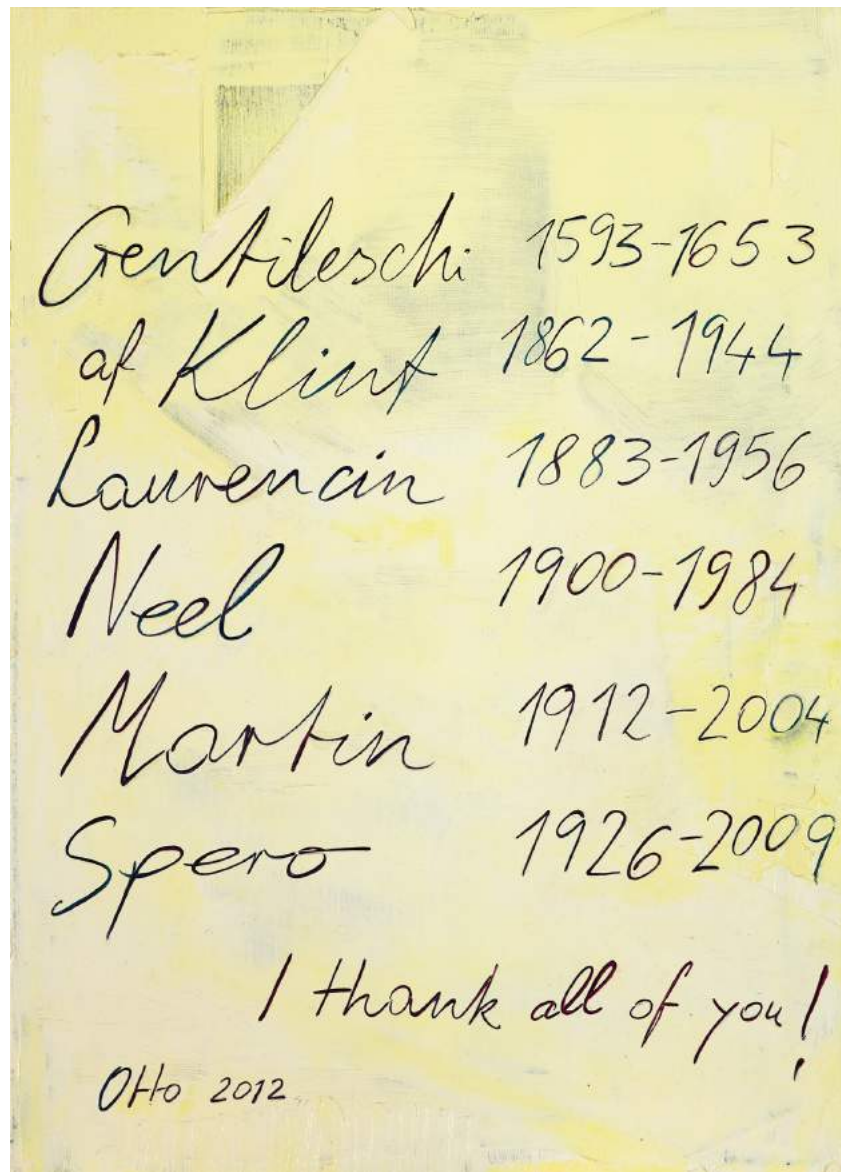 Gentileschi 1593-1653
af Klint 1862-1944
Laurencin 1883-1956
Neel 1900-1984
Martin 1912-2004
Spero 1926-2009
I thank all of you!
Otto 2012